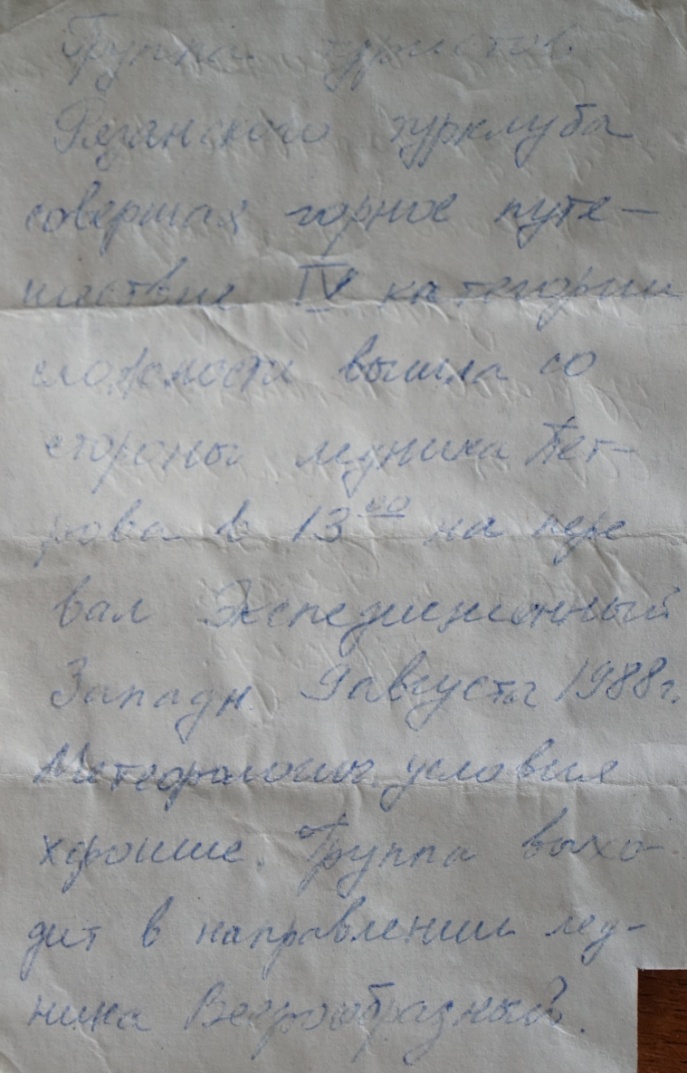 Группа туристов
Рязанского турклуба
совершая горное путе-
шествие IV категории
сложности вышла со
стороны ледника Пет-
рова в 13 00 на пере
вал Экспедиционный
Западн. 9 августа 1988г.
условия
хорошие. Группа выхо-
дит в направлении лед-
ника Веерообразный.